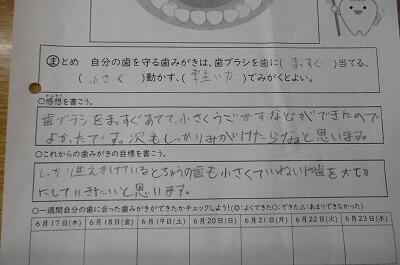 まとめ 自分の歯を守る歯みがきは、歯ブラシを歯に(まっすぐ)当てる、
(小さく)動かす、(軽い力)でみがくとよい。
○感想を書こう。
歯ブラシをまっすぐあてて、小さくうごかすなどができたので
よかったです。次もしっかりみがけたらなぁと思います。
○これからの歯みがきの目標を書こう。
しっかり生えかけているとちゅうの歯も小さくていねいに歯を大切
にしていきたいと思います。
○一週間自分の歯に合った歯みがきができたかチェックしよう!(◎:よくできた○:できた△:あまりできなかった)
6月17日(木) 6月18日(金) 6月19日(土) 6月20日(日) 6月21日(月) 6月22日(火) 6月23日(水)